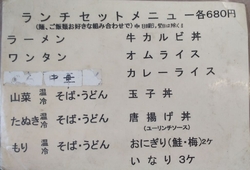 ランチセットメニュー各680円
(麺、ご飯類お好きな組み合わせで)
ラーメン 牛カルビ丼
ワンタン オムライス
カレーライス
山菜 温冷 そば・うどん 玉子丼
たぬき 温冷 そば・うどん 唐揚げ丼
(ユーリンチソース)
もり 温冷 そば・うどん おにぎり(鮭・梅)2ケ
いなり 3ケ